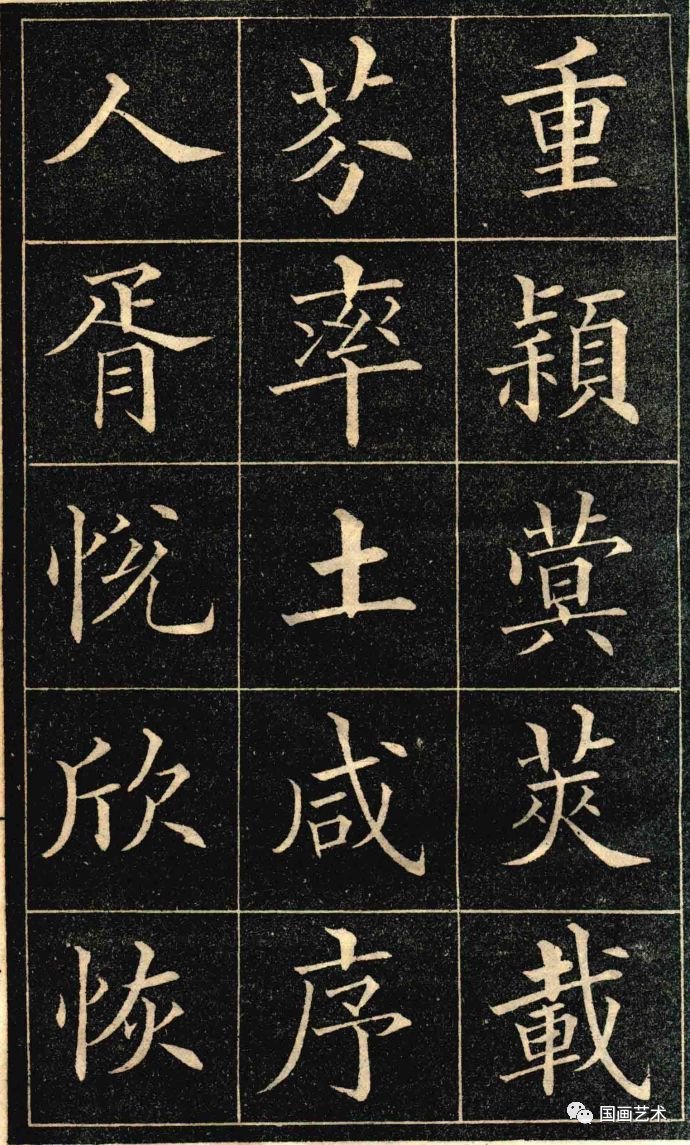 重穎蓂莢載
芬率土咸序
人胥悅欣恢
国画艺术